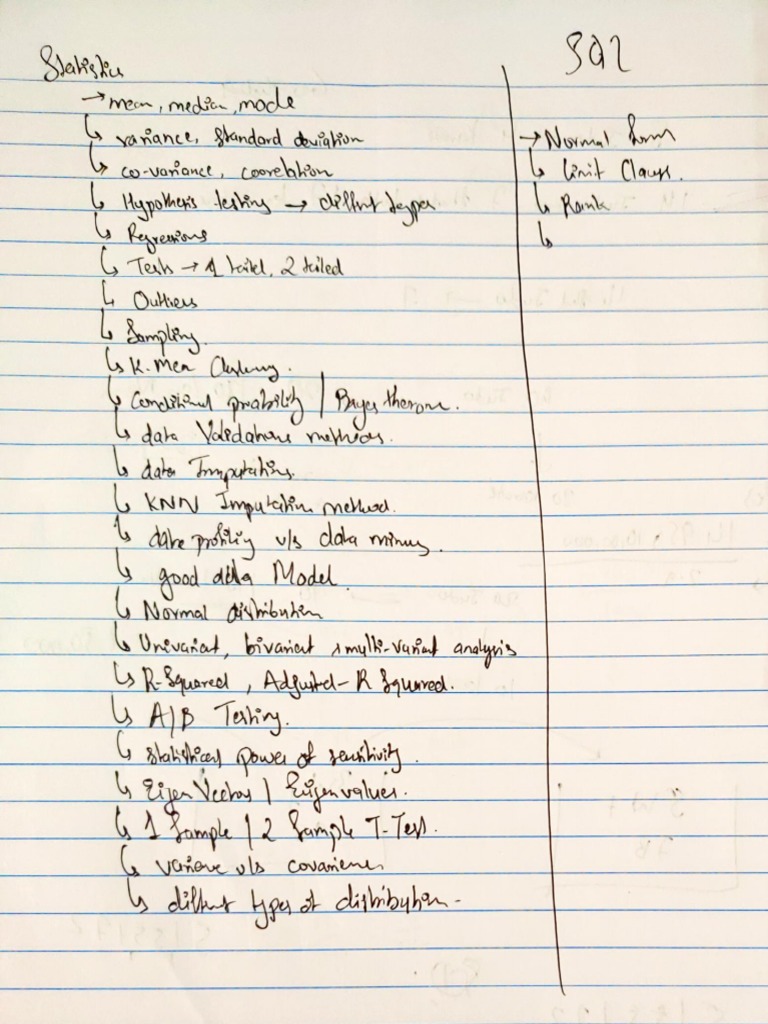 Statistics
→ mean, median, mode
↳ variance, standard deviation
↳ co-variance, coorelation
↳ Hypothesis testing → diffent types
↳ Regressions
↳ Tests → 1 tailed, 2 tailed
↳ Outliers
↳ Sampling
↳ K-Mean Clustering.
↳ Conditional probability / Bayes theorem.
↳ data Validations methods.
↳ data Imputations.
↳ KNN Imputation method.
↳ data profiling v/s data mining.
↳ good data Model
↳ Normal distribution
↳ Univariat, bivariat, multi-variat analysis
↳ R-Squared, Adjusted-R Squared.
↳ A/B Testing.
↳ statistical power of sensitivity.
↳ Eigen Vectors / Eigen values.
↳ 1 Sample / 2 Sample T-Test.
↳ variance v/s covariance
↳ diffent types of distribution-
SQL
→ Normal form
↳ limit Clause.
↳ Rank
↳